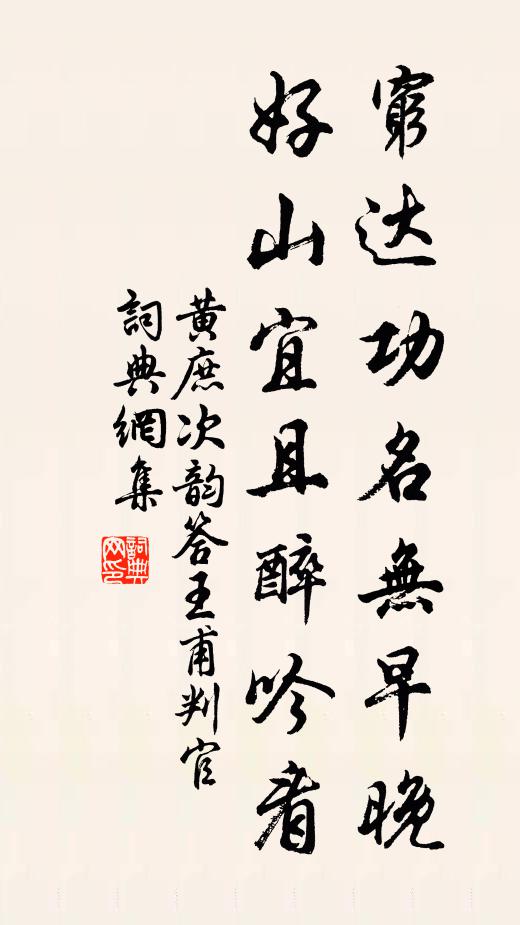 窮达功名無早晚
好山宜且醉吟看
黃庶次韵答王甫判官
詞典網集
詞典網印